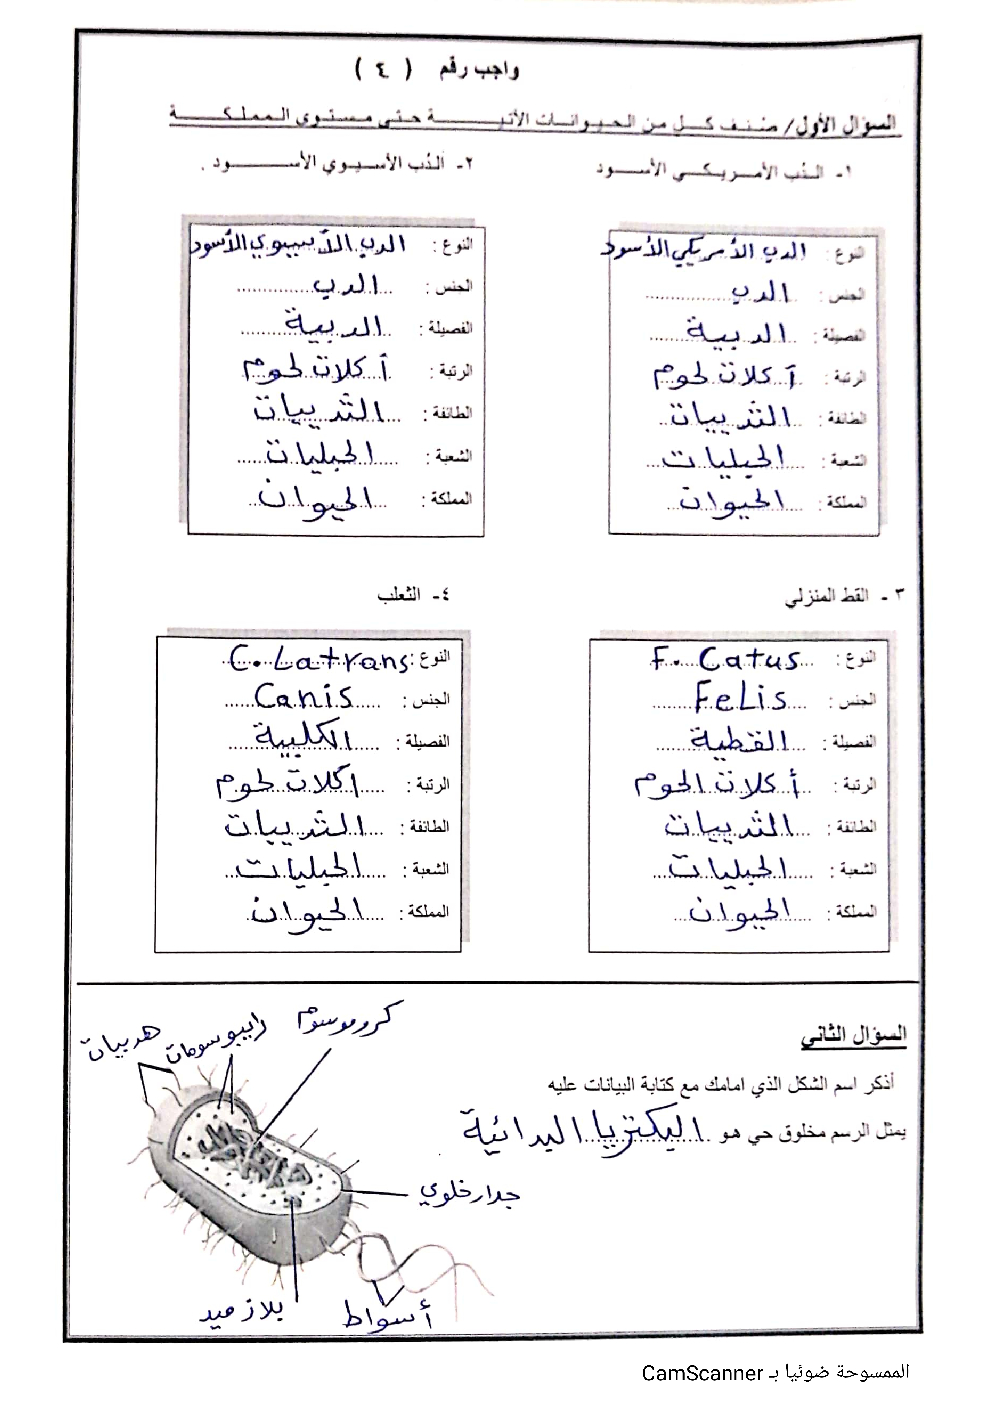 واجب رقم ( ٤ )
السؤال الأول/ صنف كل من الحيوانات الآتية حتى مستوى المملكة
١- الدب الأمريكي الأسود
٢- الدب الأسيوي الأسود .
النوع : الدب الأمريكي الأسود
الجنس : الدب
الفصيلة : الدبية
الرتبة : آكلات لحوم
الطائفة : الثدييات
الشعبة : الحبليات
المملكة : الحيوان
النوع : الدب الآسيوي الأسود
الجنس : الدب
الفصيلة : الدبية
الرتبة : أكلات لحوم
الطائفة : الثدييات
الشعبة : الحبليات
المملكة : الحيوان
٣- القط المنزلي
٤- الثعلب
النوع : F. Catus
الجنس : Felis
الفصيلة : القطية
الرتبة : أكلات الحوم
الطائفة : الثدييات
الشعبة : الحبليات
المملكة : الحيوان
النوع : C. Latrans
الجنس : Canis
الفصيلة : الكلبية
الرتبة : اكلات لحوم
الطائفة : الثدييات
الشعبة : الحبليات
المملكة : الحيوان
السؤال الثاني
أذكر اسم الشكل الذي امامك مع كتابة البيانات عليه
يمثل الرسم مخلوق حي هو البكتريا البدائية
كروموسوم
رايبوسومات
هدبيات
جدار خلوي
أسواط
بلازميد
الممسوحة ضوئيا بـ CamScanner